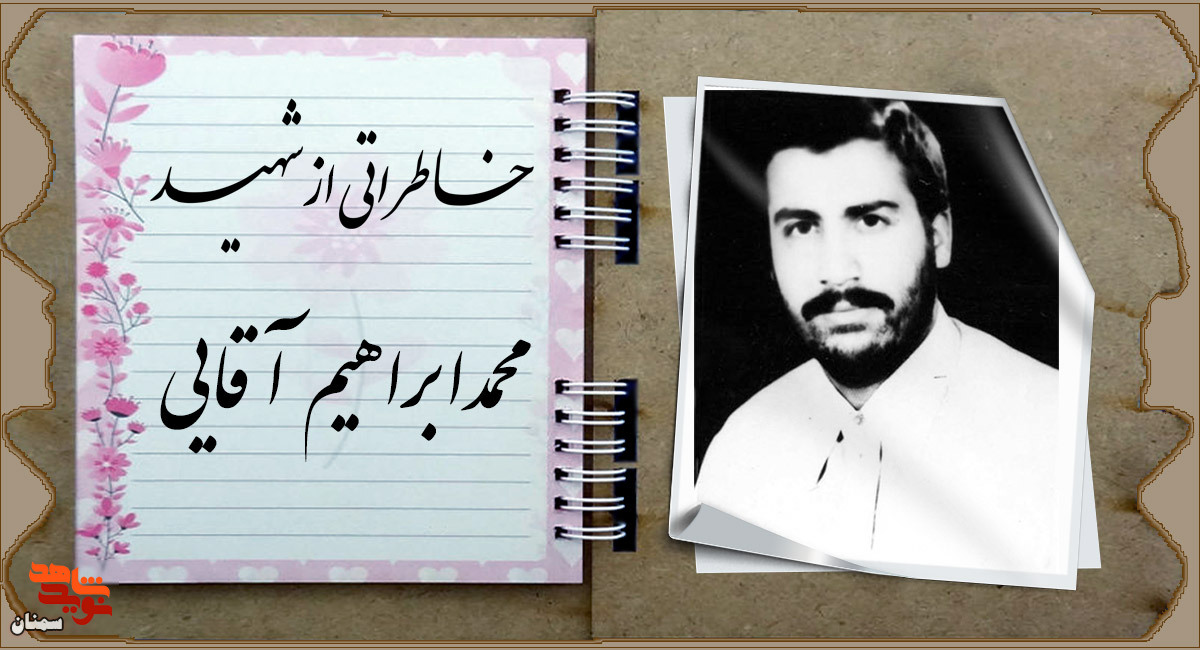 خاطراتی از شهید
محمدابراهیم آقایی
نوید شاهد
سمنان